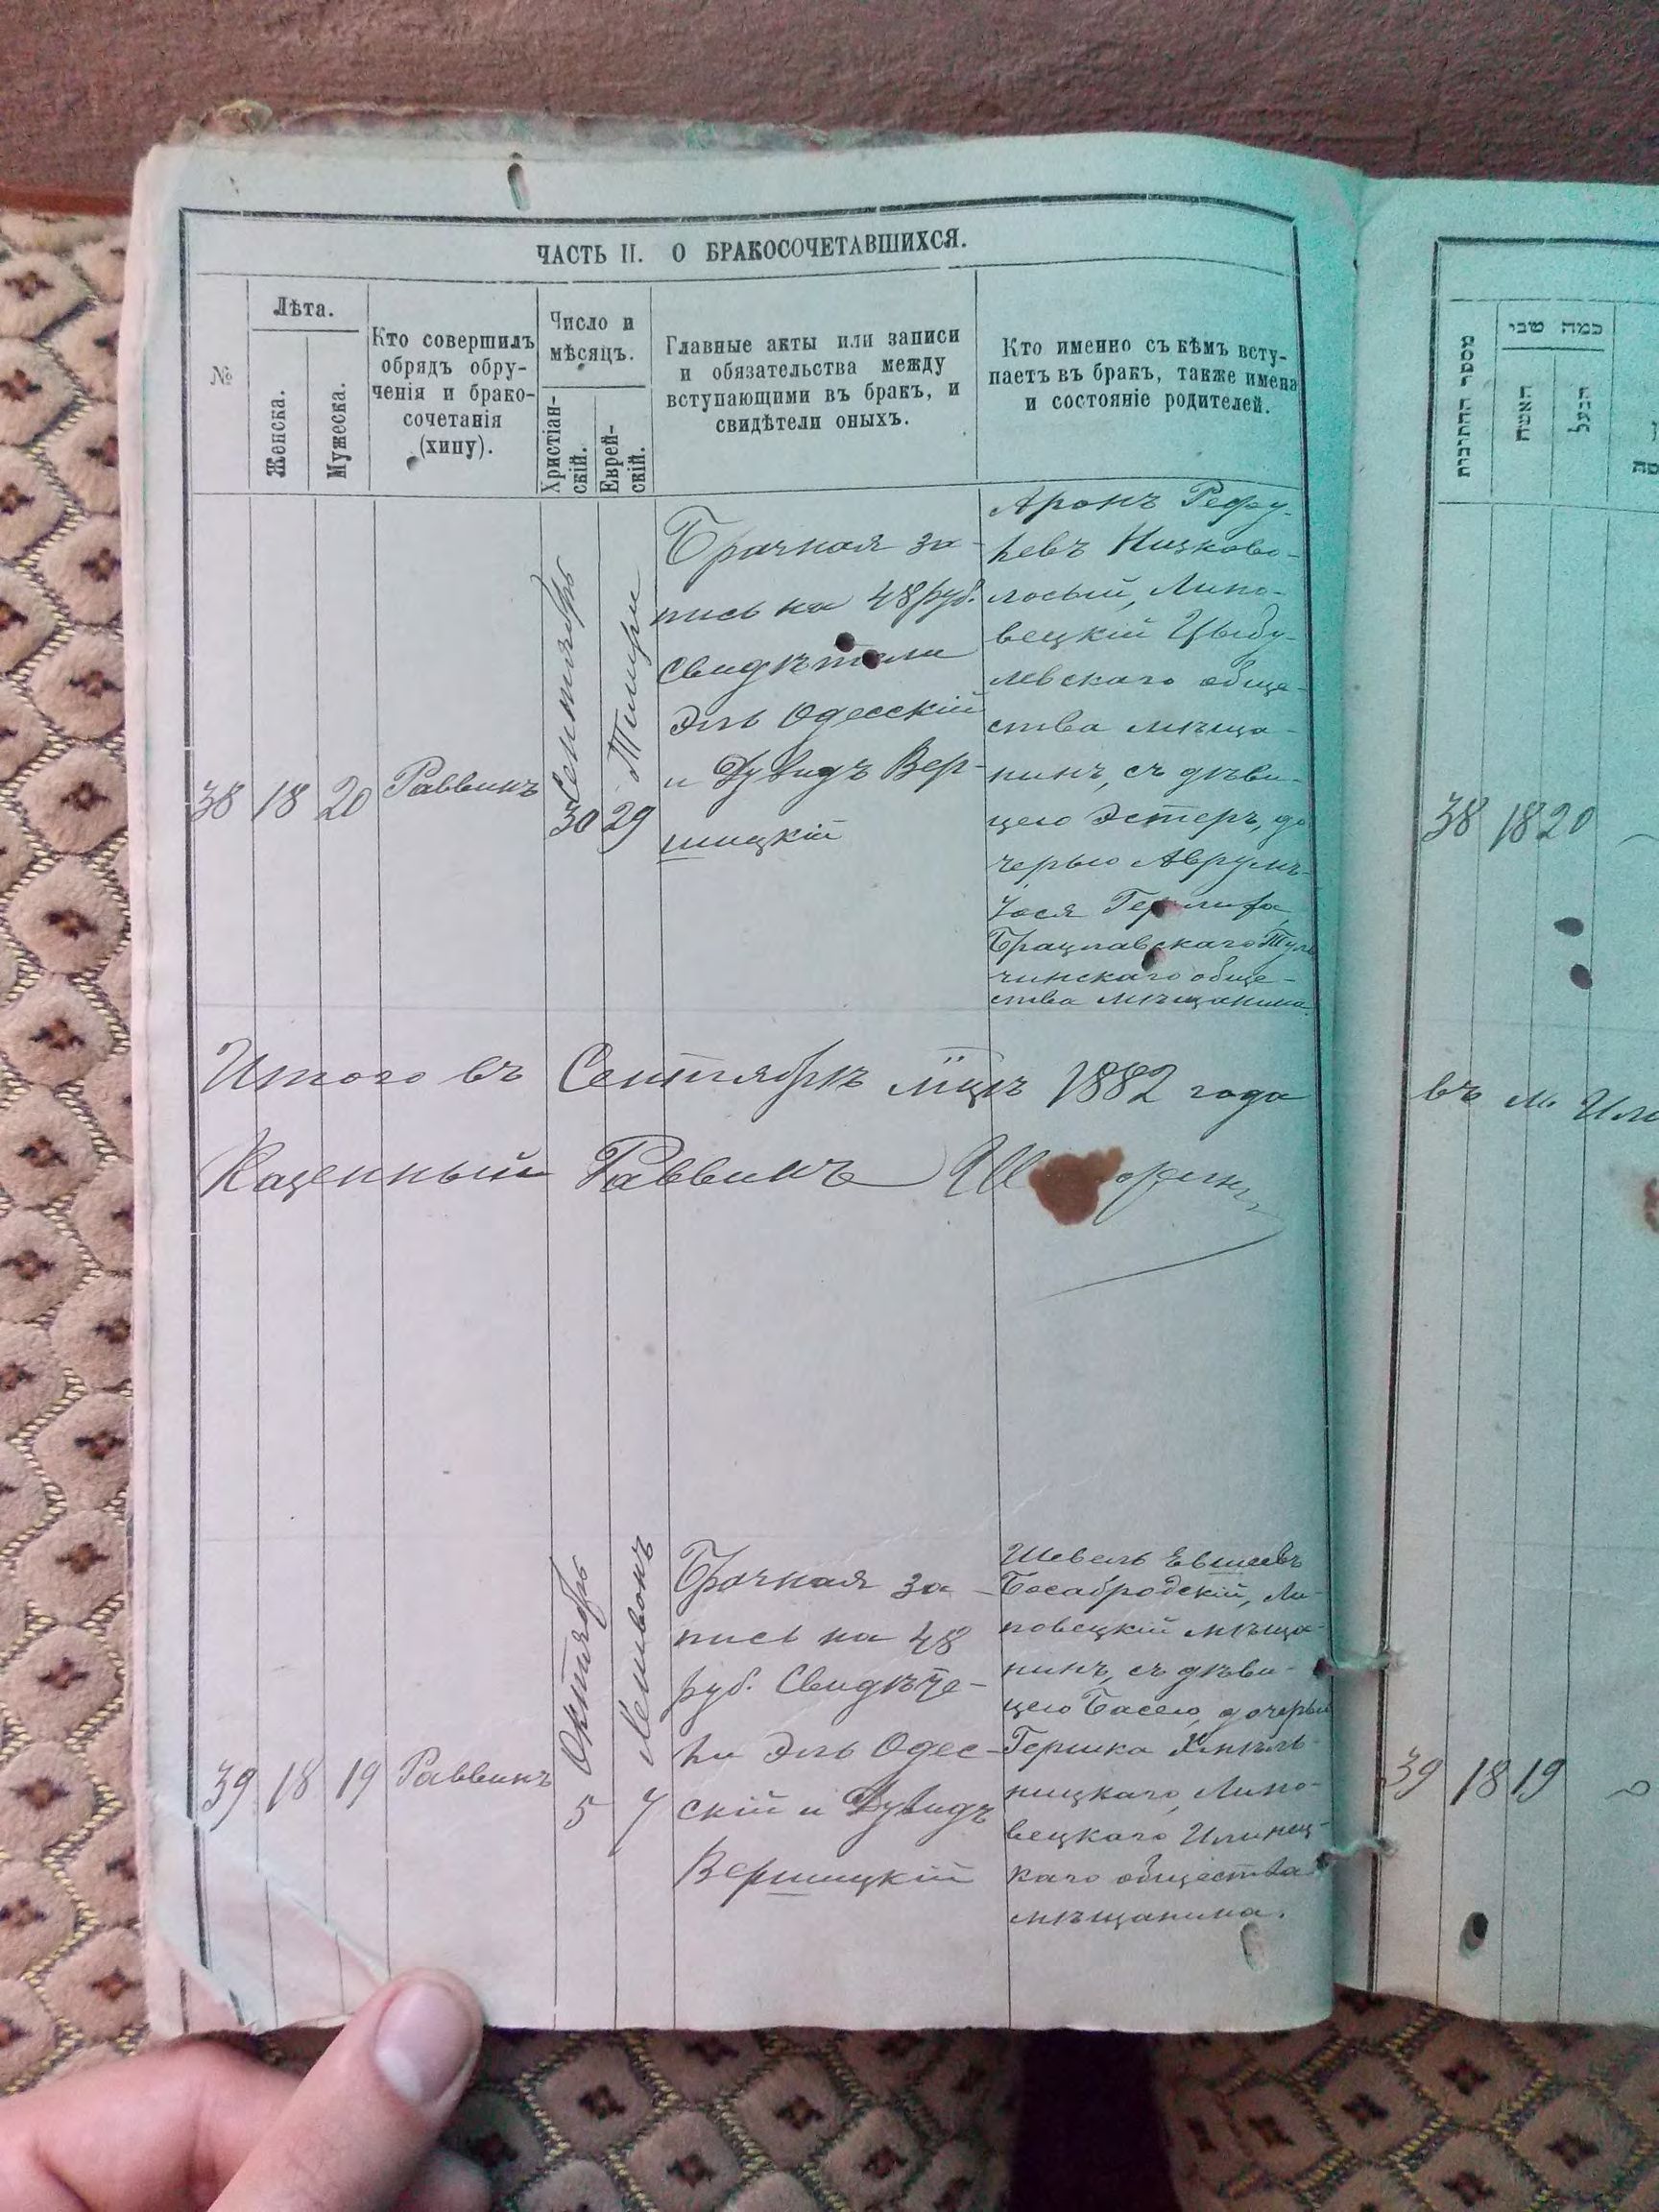 ЧАСТЬ II. О БРАКОСОЧЕТАВШИХСЯ.
№
Лѣта.
Женска.
Мужеска.
Кто совершилъ
обрядъ обру-
ченія и брако-
сочетанія
(хипу).
Число и
мѣсяцъ.
Христіан-
скій.
Еврей-
скій.
Главные акты или записи
и обязательства между
вступающими въ бракъ, и
свидѣтели оныхъ.
Кто именно съ кѣмъ всту-
паетъ въ бракъ, также имена
и состояніе родителей.
38
18
20
Раввинъ
Сентябрь
30
Тишри
29
Брачная за-
пись на 48 руб.
Свидѣтели
Эль Одесскій
и Дувидъ Вер-
шицкій
Аронъ Рефу-
левъ Низково-
лосый, Липо-
вецкій Цыбу-
левскаго обще-
ства мѣща-
нинъ, съ дѣви-
цею Эстеръ, до
черью Аврумъ-
Іося
Брацлавскаго Туль
чинскаго обще-
ства мѣщанина.
Итого въ Сентябрѣ мцѣ 1882 года
Казенный Раввинъ
39
18
19
Раввинъ
Октябрь
5
Хешвонъ
4
Брачная за-
пись на 48
руб. Свидѣте-
ли Эль Одес-
скій и Дувидъ
Вершицкій
Шевель Евшеевъ
Босабродскій, Ли-
повецкій мѣща-
нинъ, съ дѣви-
цею Басею, дочерью
Гершка Хмѣль-
ницкаго, Липо-
вецкаго Илинец-
каго общества
мѣщанина.
מספר החתונות
כמה שני
האשה
הבעל
38
18
20
въ м. Или
39
18
19